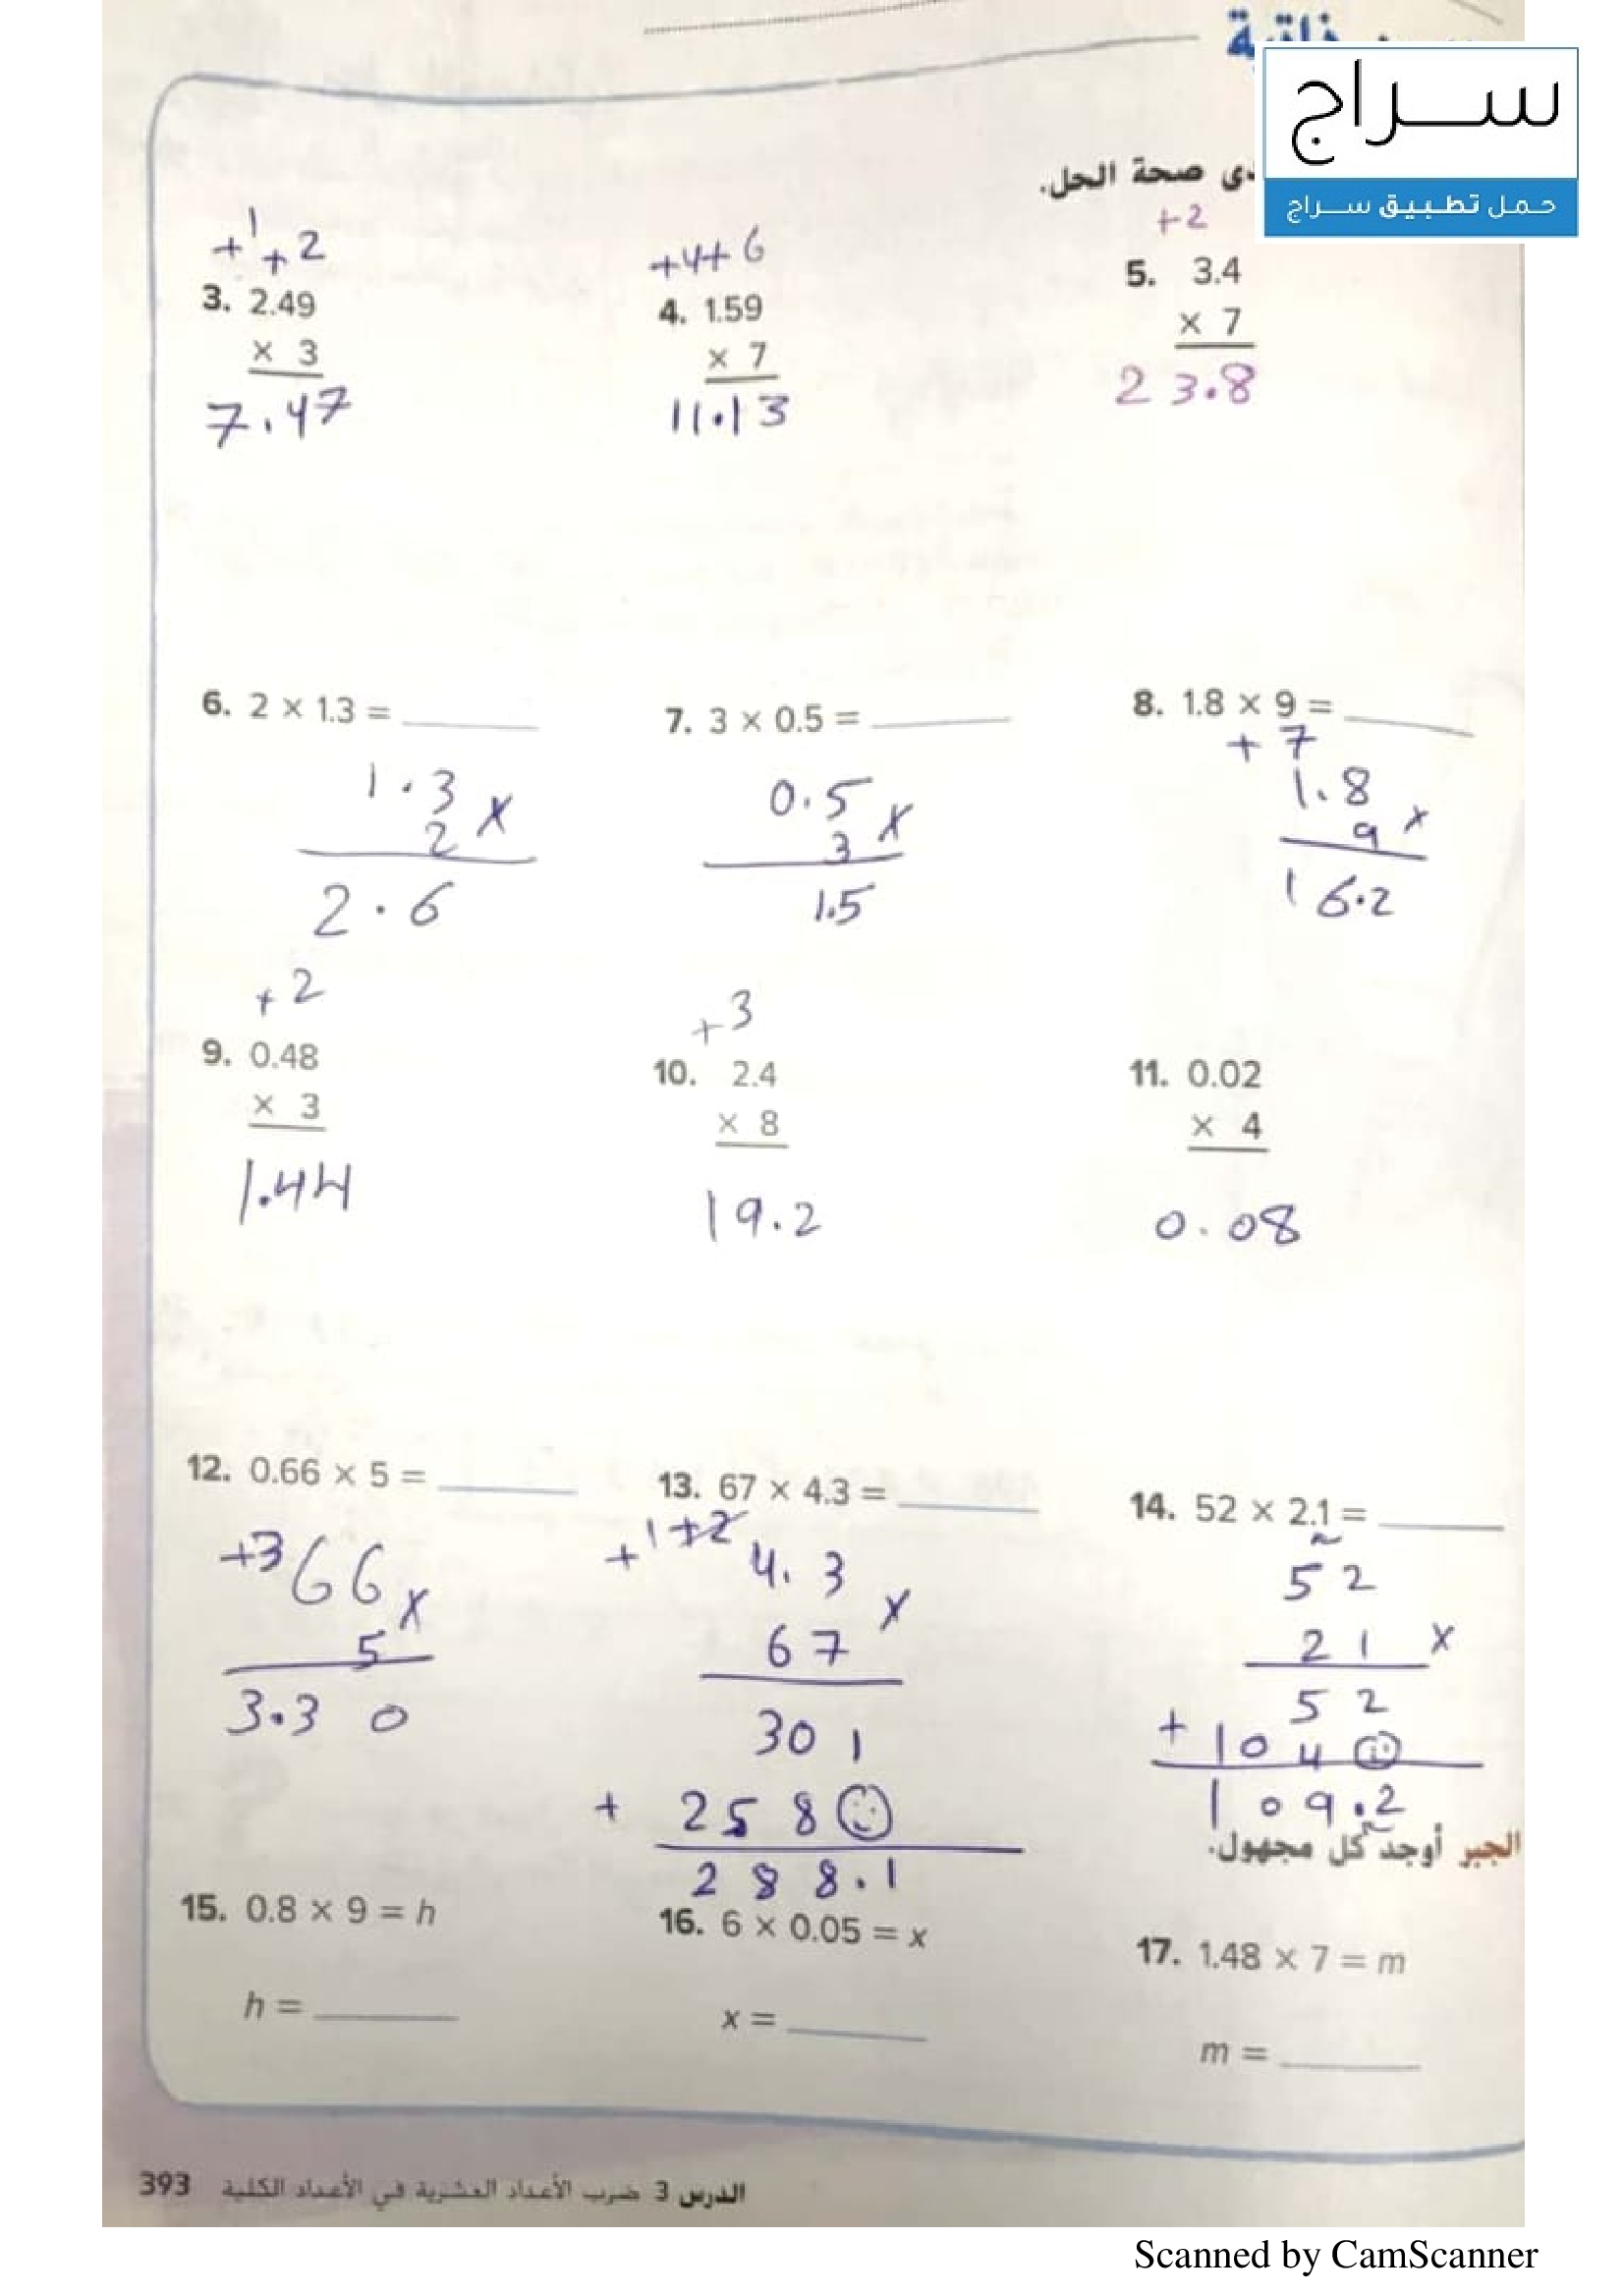 ذاتية
سراج
حمل تطبيق سراج
صحة الحل.
+1 +2
3. 2.49
× 3
7.47
+4+6
4. 1.59
× 7
11.13
+2
5. 3.4
× 7
23.8
6. 2 × 1.3 = ______
1.3 ×
2
2.6
7. 3 × 0.5 = ______
0.5 ×
3
1.5
8. 1.8 × 9 = ______
+7
1.8 ×
9
16.2
+2
9. 0.48
× 3
1.44
+3
10. 2.4
× 8
19.2
11. 0.02
× 4
0.08
12. 0.66 × 5 = ______
+3 66 ×
5
3.30
13. 67 × 4.3 = ______
+1+2
4.3 ×
67
301
+ 258☺
288.1
14. 52 × 2.1 = ______
52
21 ×
52
+ 104☺
109.2
الجبر أوجد كل مجهول.
15. 0.8 × 9 = h
h = ______
16. 6 × 0.05 = x
x = ______
17. 1.48 × 7 = m
m = ______
الدرس 3 ضرب الأعداد العشرية في الأعداد الكلية 393
Scanned by CamScanner